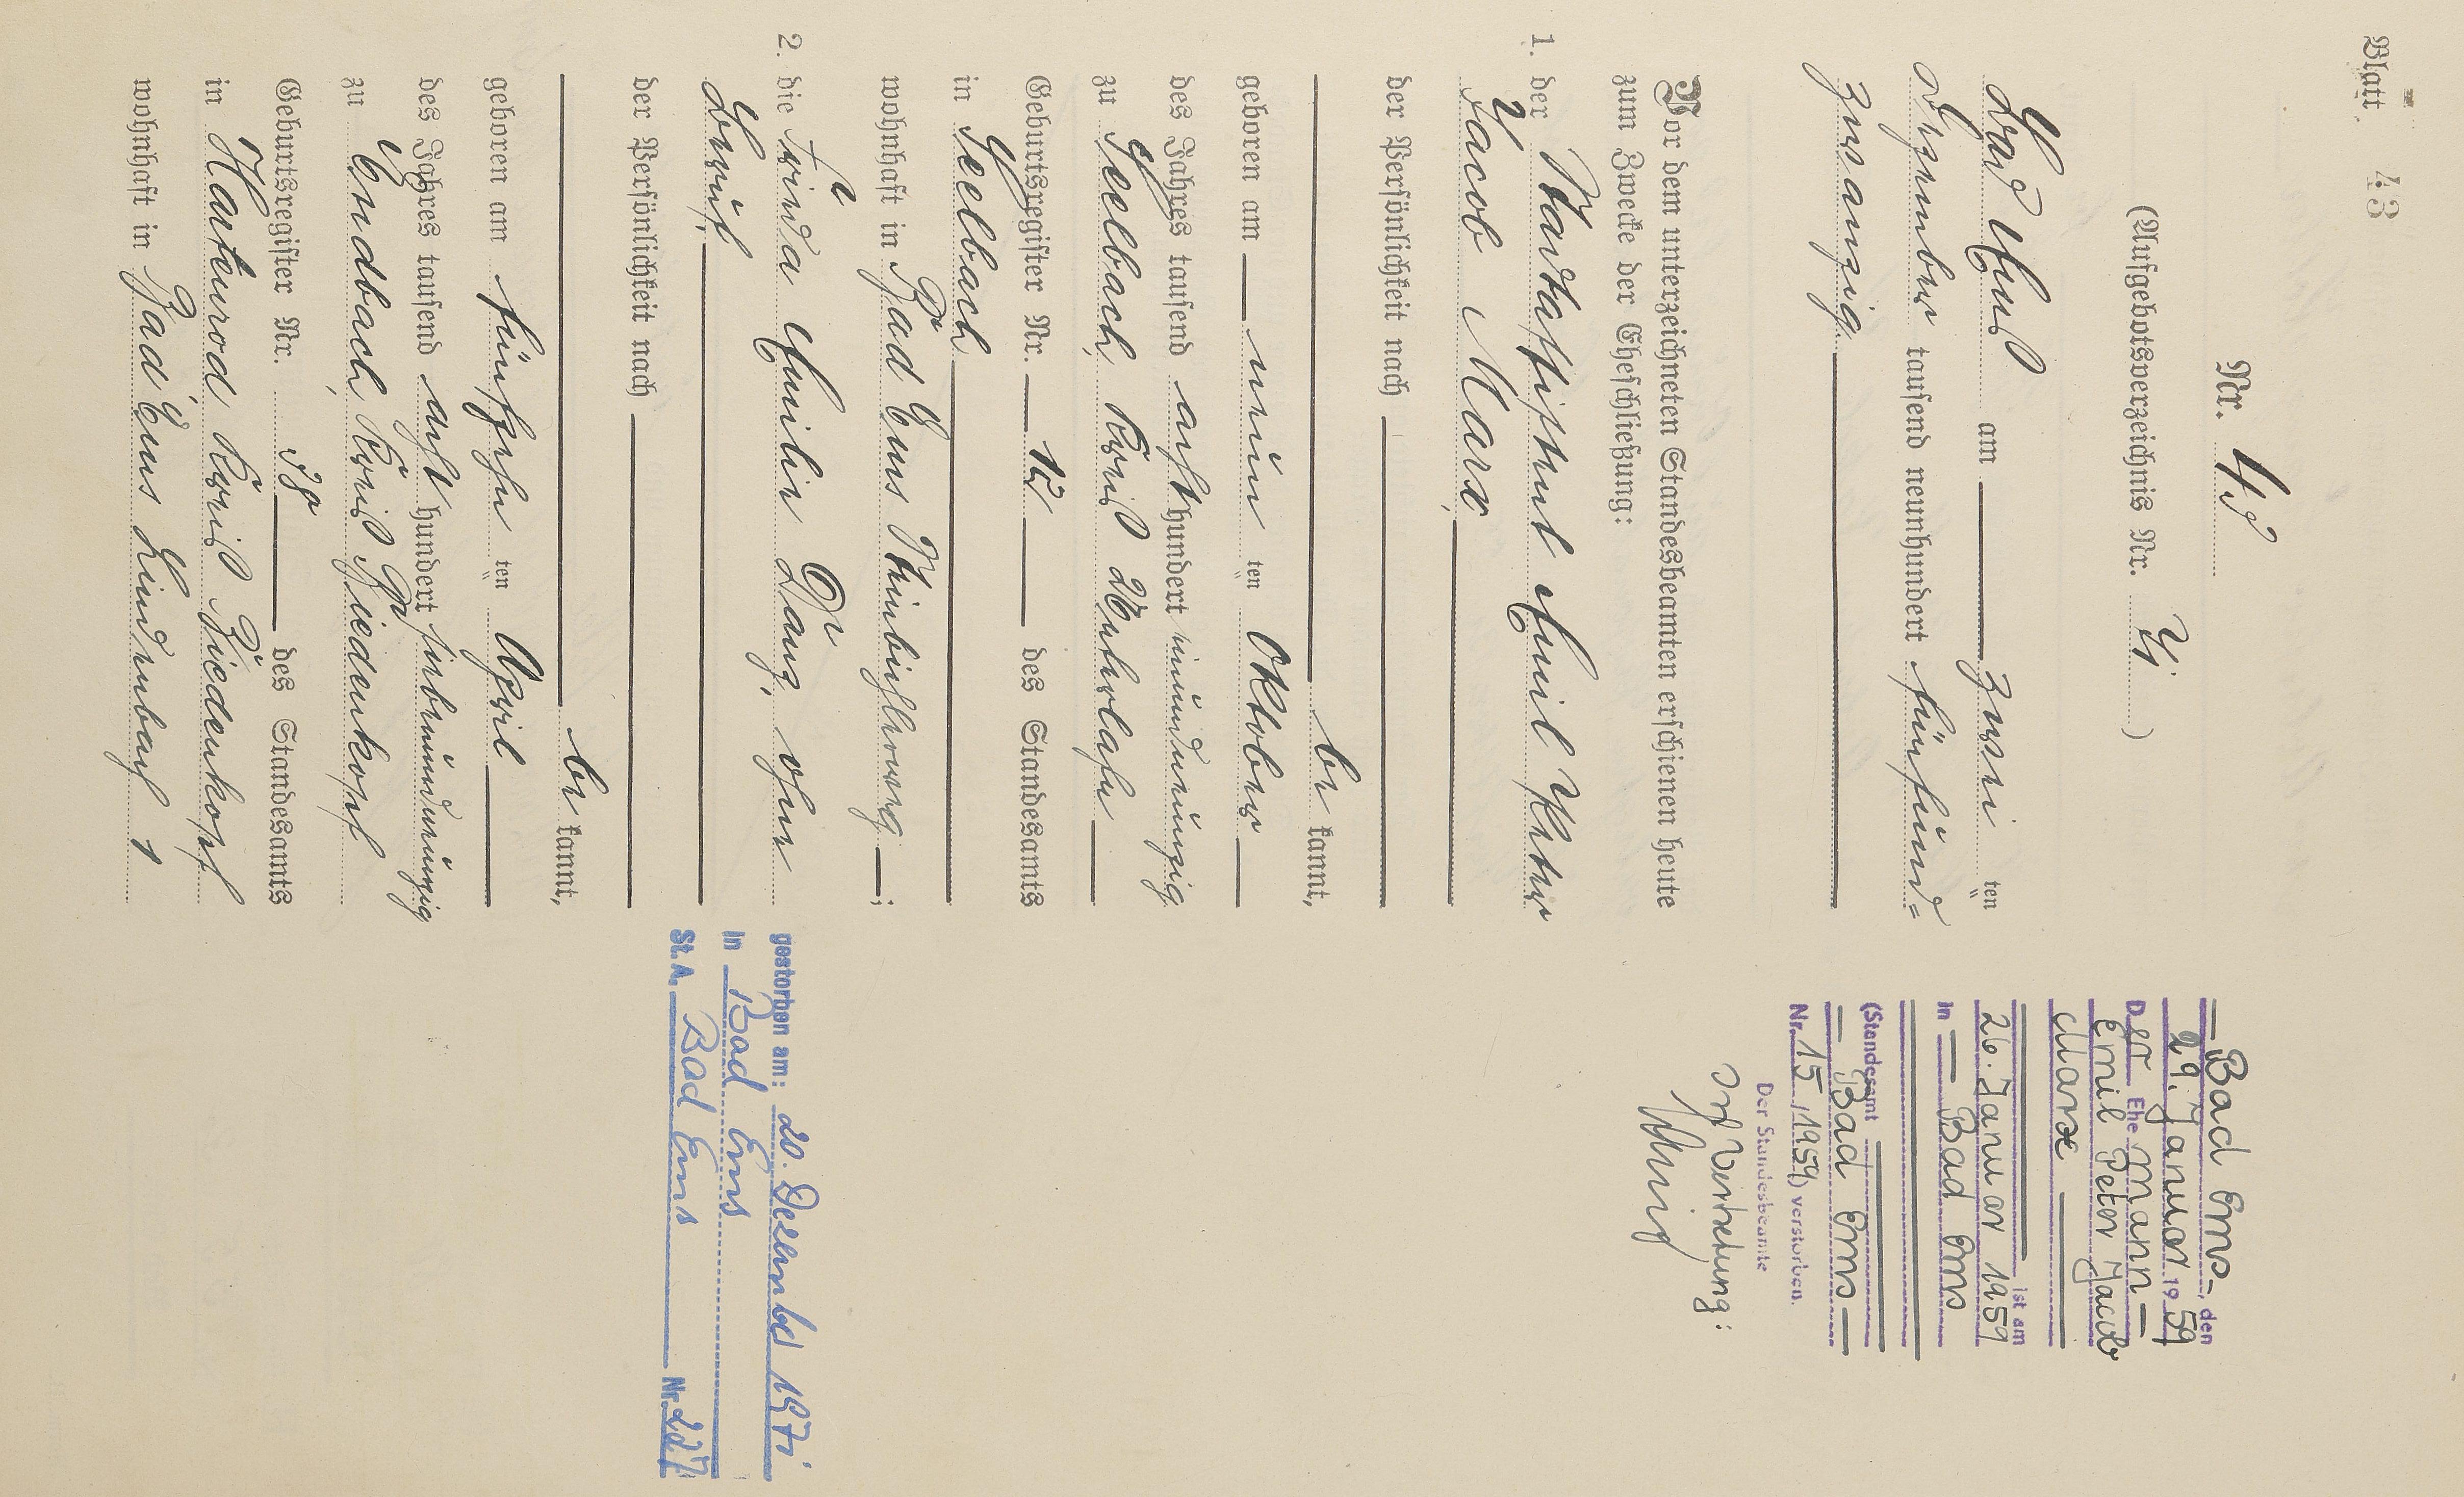 Blatt 43
Nr. 43
(Aufgebotsverzeichnis Nr. 41)
Bad Ems am zwei ten
Dezember tausend neunhundert fünfund=
zwanzig
Vor dem unterzeichneten Standesbeamten erschienen heute
zum Zwecke der Eheschließung:
1. der Emil Peter
Jacob Marx,
der Persönlichkeit nach
be kannt,
geboren am neun ten Oktober
des Jahres tausend acht hundert neunundneunzig
zu Seelbach, Kreis Unterlahn
Geburtsregister Nr. 12 des Standesamts
in Seelbach
wohnhaft in Bad Ems ;
2. die Frieda Emilie Lang, ohne
Beruf,
der Persönlichkeit nach
be kannt,
geboren am fünfzehn ten April
des Jahres tausend acht hundert siebenundneunzig
zu Endbach, Kreis Biedenkopf
Geburtsregister Nr. 38 des Standesamts
in Hartenrod Kreis Biedenkopf
wohnhaft in Bad Ems Lindenbach 1
Bad Ems, den
29. Januar 1959
Der Ehemann
Emil Peter Jacob
Marx
ist am
26. Januar 1959
in Bad Ems
(Standesamt
Bad Ems
Nr. 15/1959) verstorben.
Der Standesbeamte
In Vertretung:
gestorben am: 20. Dezember 1971
in Bad Ems
St.A. Bad Ems Nr. 227